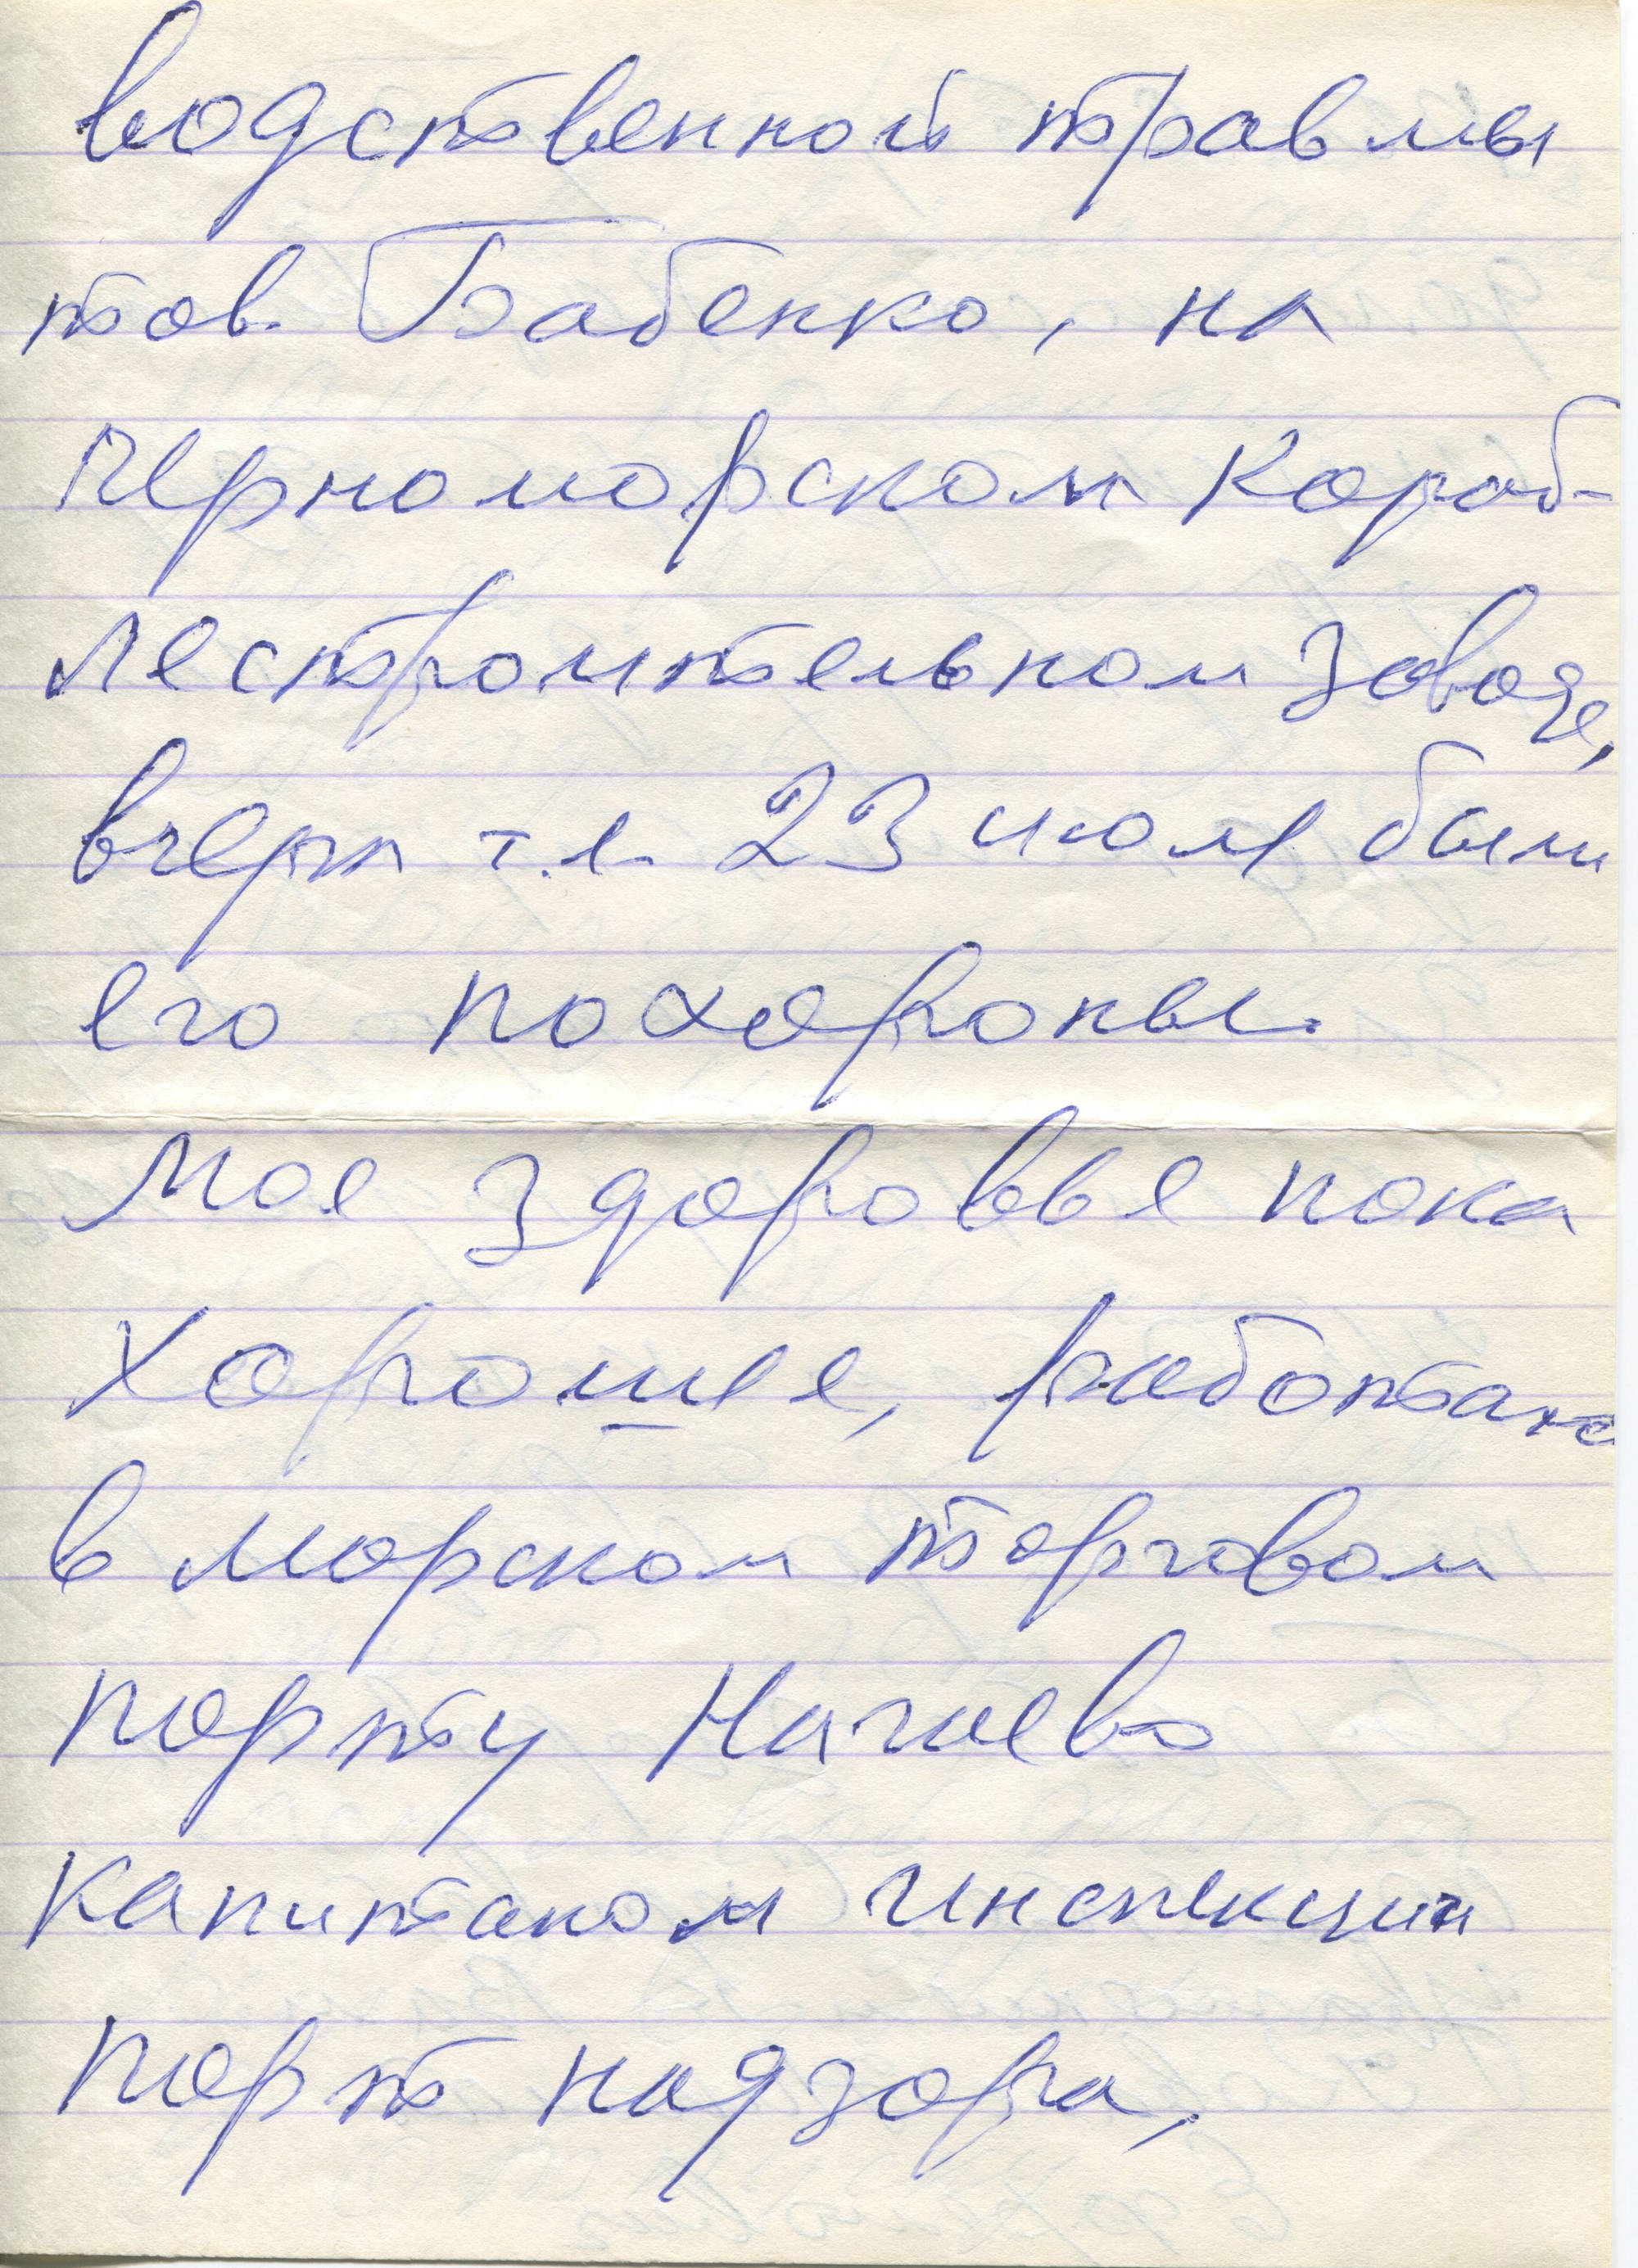 водственной травмы
тов. Бабенко, на
черноморском кораб-
лестроительном заводе,
вчера т.е. 23 июля были
его похороны.
мое здоровье пока
хорошее, работаю
в морском торговом
порту Нагаево
капитаном инспекции
порт надзора,